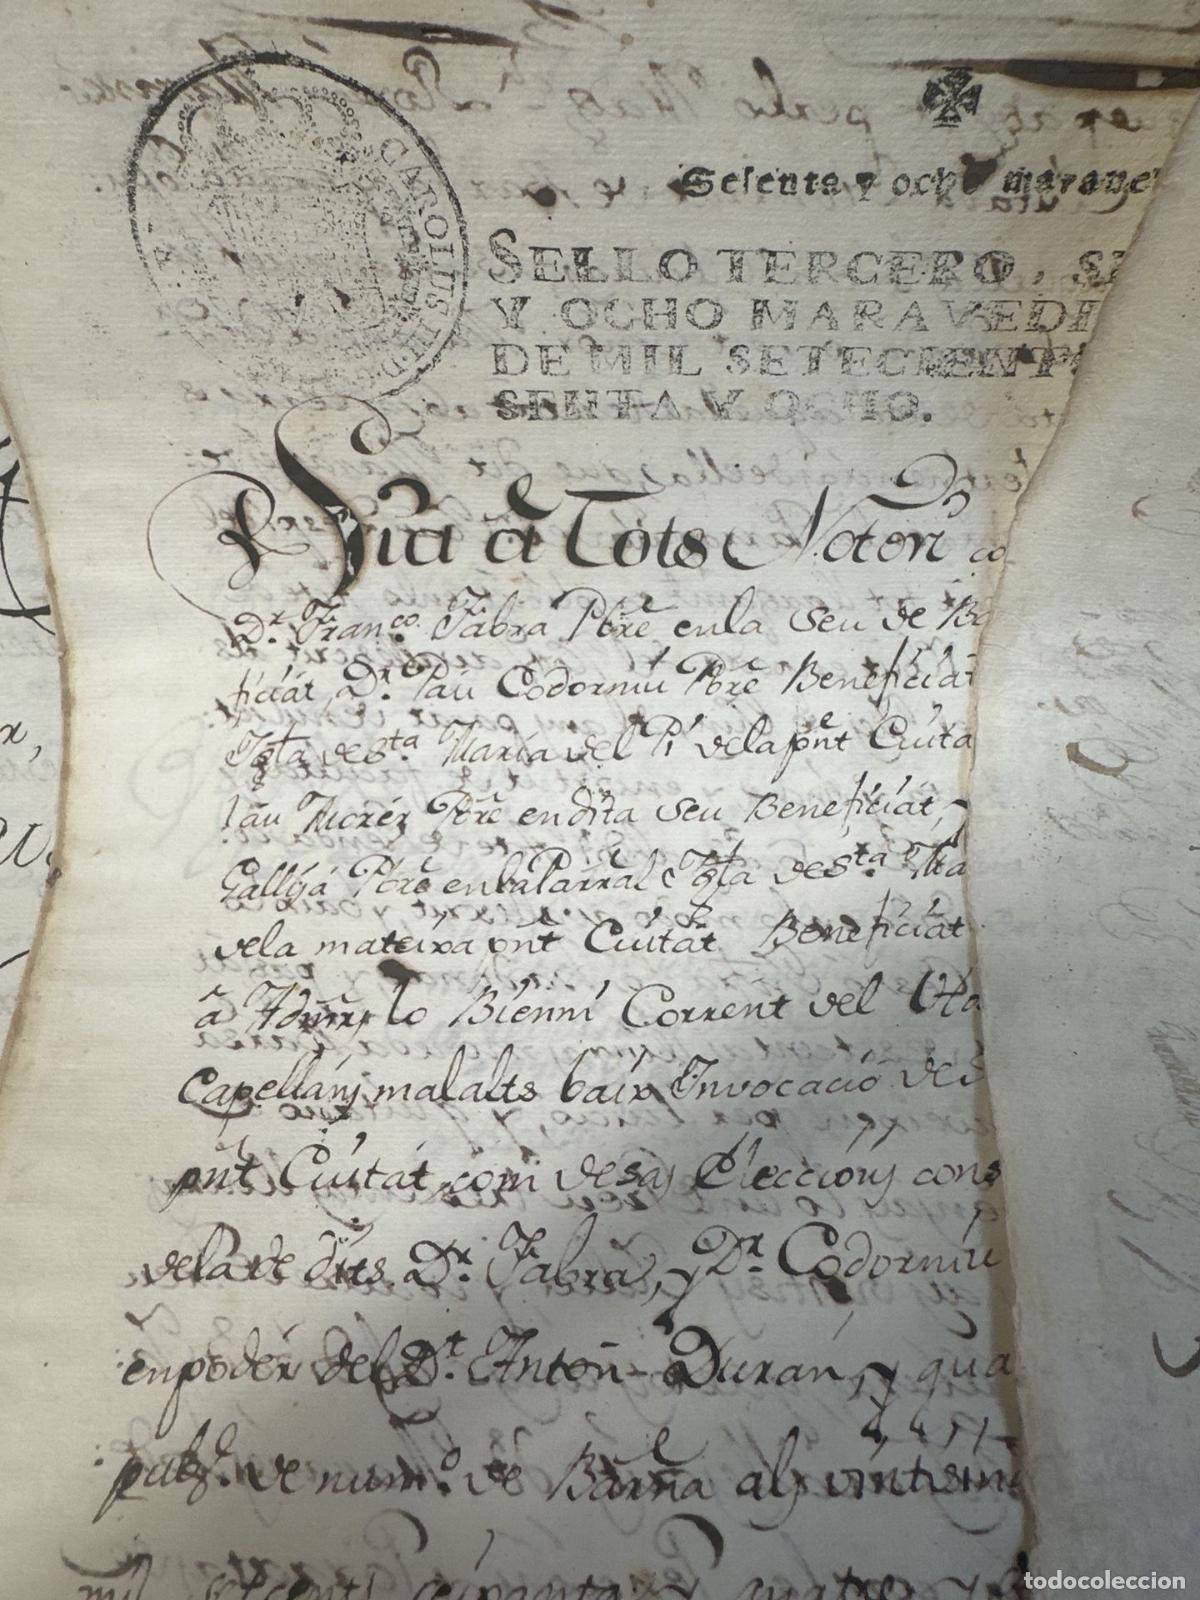 CAROLUS III D
Sesenta y ocho marave
SELLO TERCERO, SE
Y OCHO MARAVEDI
DE MIL SETECIENTO
SENTA Y OCHO.
Sia a Tots Notori co
Dr. Franco. Fabra Pbre en la Seu de Ba
ficiat, Dr. Pau Codorniu Pbre Beneficiat
Igla de Sta Maria del Pi dela pnt Ciuta
lau Morer Pbre en dita Seu Beneficiat, y
Gallyá Pbre en la Parral Igla de Sta Ma
dela mateixa pnt Ciutat Beneficiat
a Admrs lo Bienni Corrent del
Capellans malalts baix Invocació de S
pnt Ciutat, com de sas Eleccions cons
dela de dits Dr. Fabra, y Dr. Codorniu
en poder del Dr. Anton Duran, y qua
pubg. de numo. de Barna als vint
mil setcents cinquanta y quatre y
todocoleccion